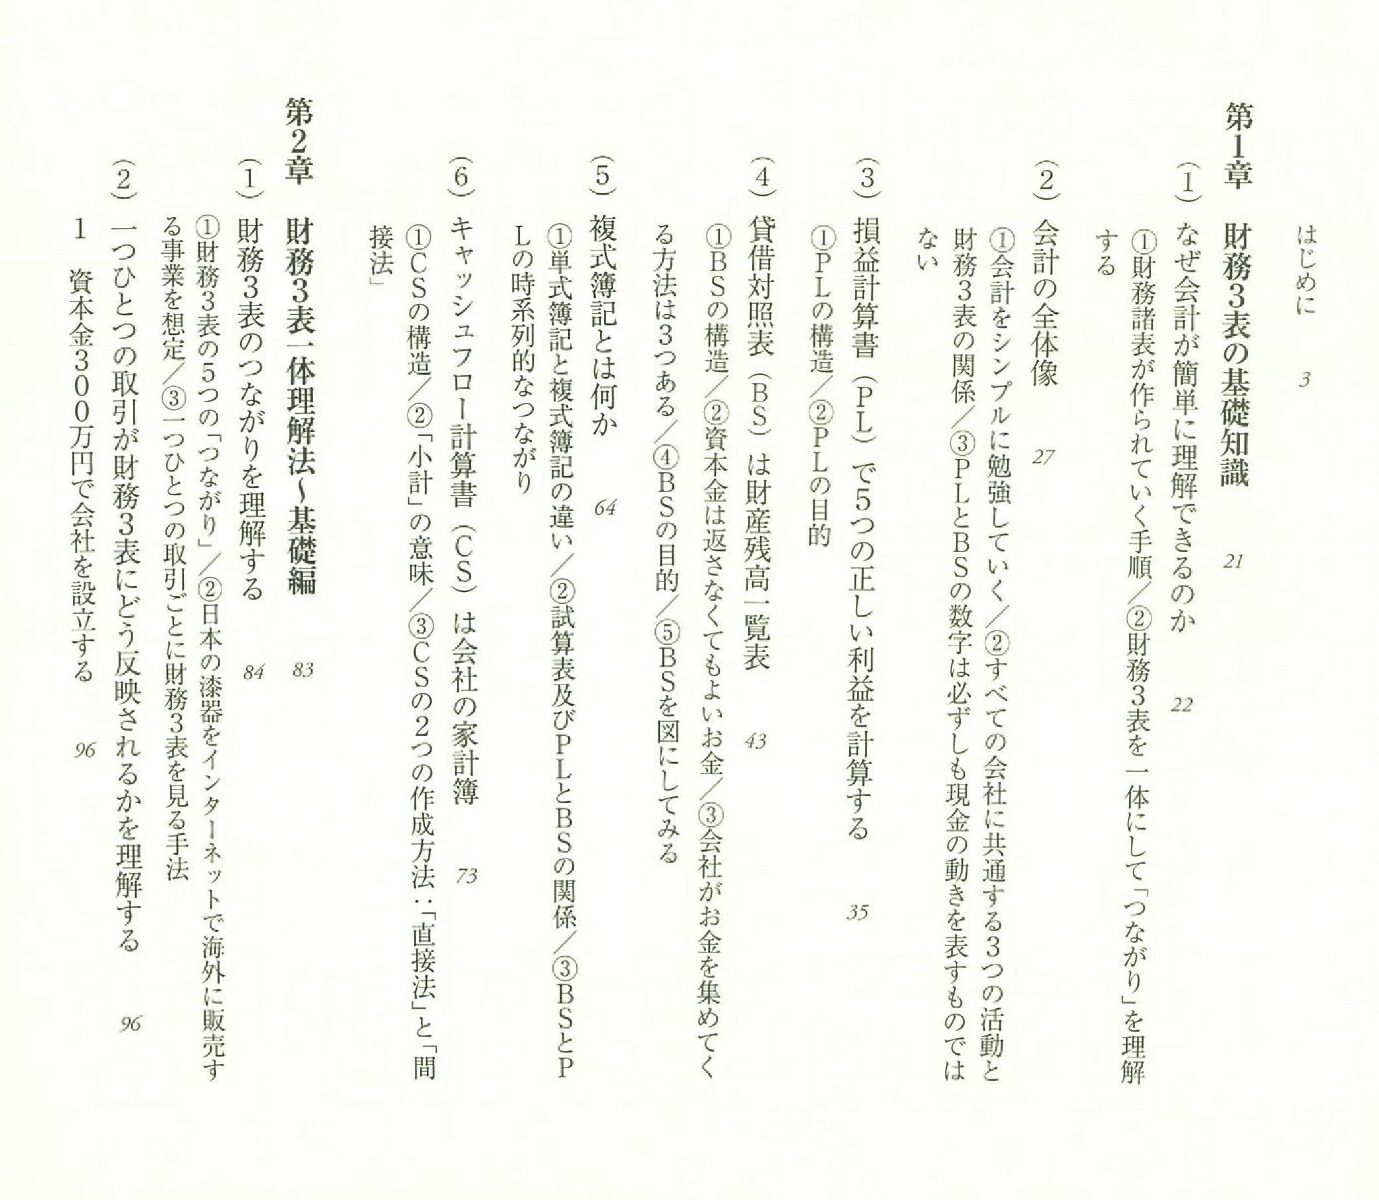 はじめに 3
第1章 財務3表の基礎知識 21
（1）なぜ会計が簡単に理解できるのか 22
①財務諸表が作られていく手順／②財務3表を一体にして「つながり」を理解
する
（2）会計の全体像 27
①会計をシンプルに勉強していく／②すべての会社に共通する3つの活動と
財務3表の関係／③PLとBSの数字は必ずしも現金の動きを表すものでは
ない
（3）損益計算書（PL）で5つの正しい利益を計算する 35
①PLの構造／②PLの目的
（4）貸借対照表（BS）は財産残高一覧表 43
①BSの構造／②資本金は返さなくてもよいお金／③会社がお金を集めてく
る方法は3つある／④BSの目的／⑤BSを図にしてみる
（5）複式簿記とは何か 64
①単式簿記と複式簿記の違い／②試算表及びPLとBSの関係／③BSとP
Lの時系列的なつながり
（6）キャッシュフロー計算書（CS）は会社の家計簿 73
①CSの構造／②「小計」の意味／③CSの2つの作成方法：「直接法」と「間
接法」
第2章 財務3表一体理解法〜基礎編 83
（1）財務3表のつながりを理解する 84
①財務3表の5つの「つながり」／②日本の漆器をインターネットで海外に販売す
る事業を想定／③一つひとつの取引ごとに財務3表を見る手法
（2）一つひとつの取引が財務3表にどう反映されるかを理解する 96
1 資本金300万円で会社を設立する 96